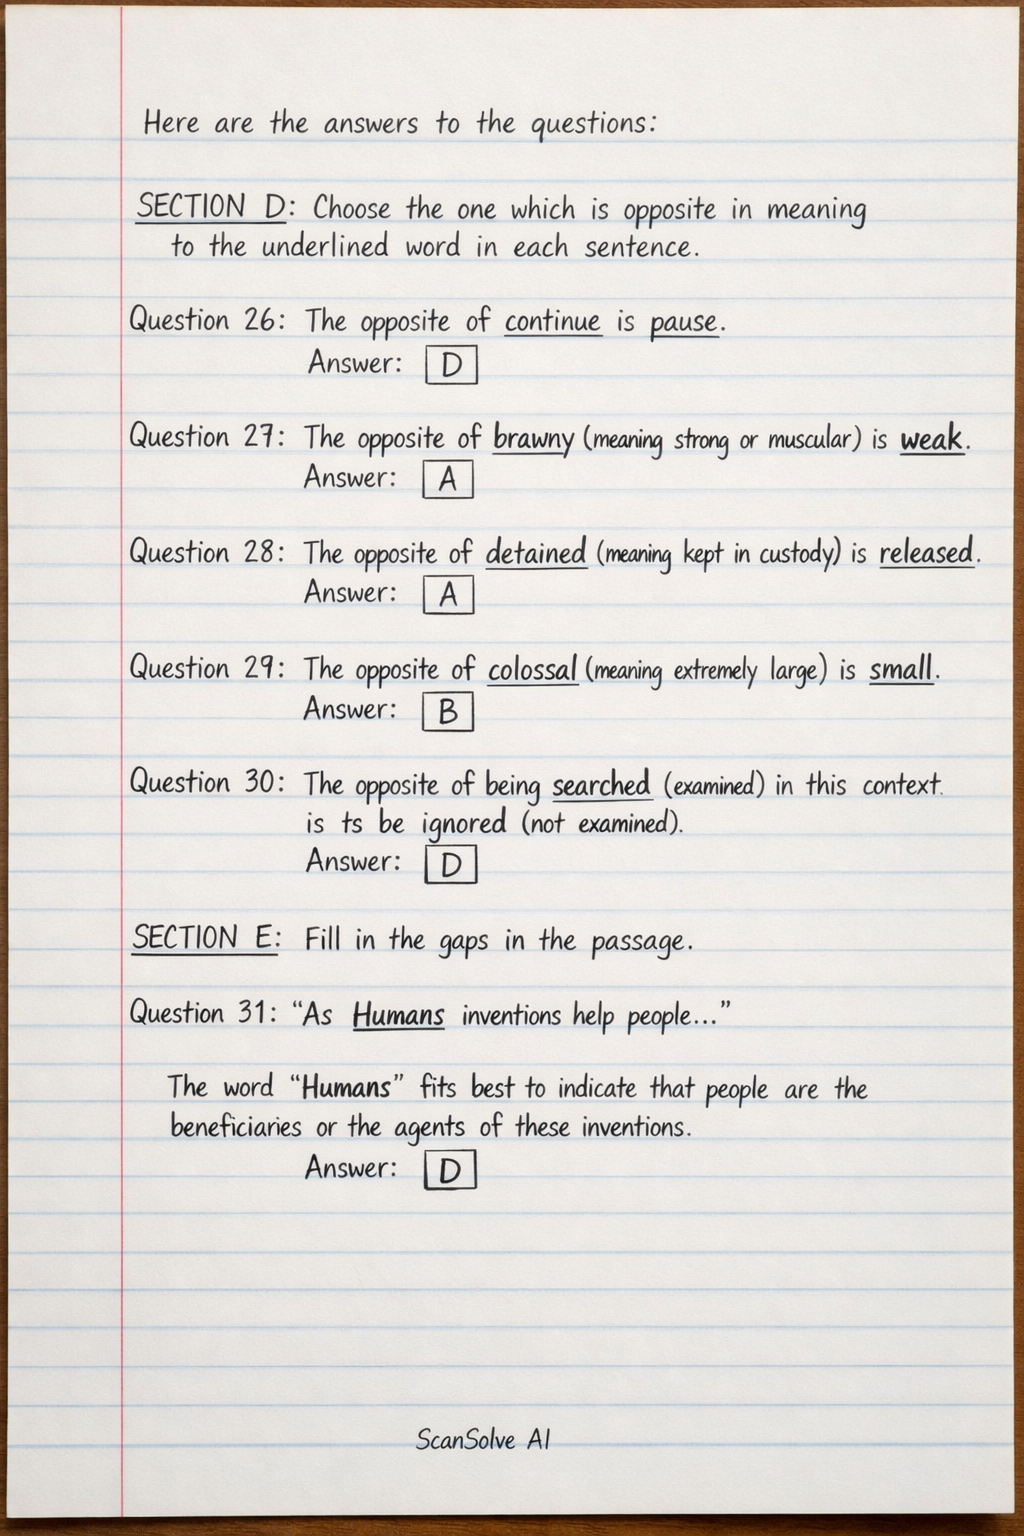 Here are the answers to the questions:
SECTION D: Choose the one which is opposite in meaning
to the underlined word in each sentence.
Question 26: The opposite of continue is pause.
Answer: D
Question 27: The opposite of brawny (meaning strong or muscular) is weak.
Answer: A
Question 28: The opposite of detained (meaning kept in custody) is released.
Answer: A
Question 29: The opposite of colossal (meaning extremely large) is small.
Answer: B
Question 30: The opposite of being searched (examined) in this context.
is ts be ignored (not examined).
Answer: D
SECTION E: Fill in the gaps in the passage.
Question 31: “As Humans inventions help people...”
The word “Humans” fits best to indicate that people are the
beneficiaries or the agents of these inventions.
Answer: D
ScanSolve AI